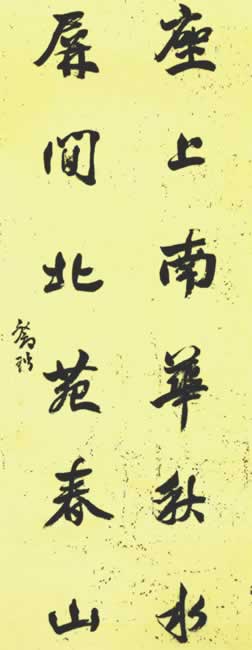 座上南華秋水
屏間北苑春山